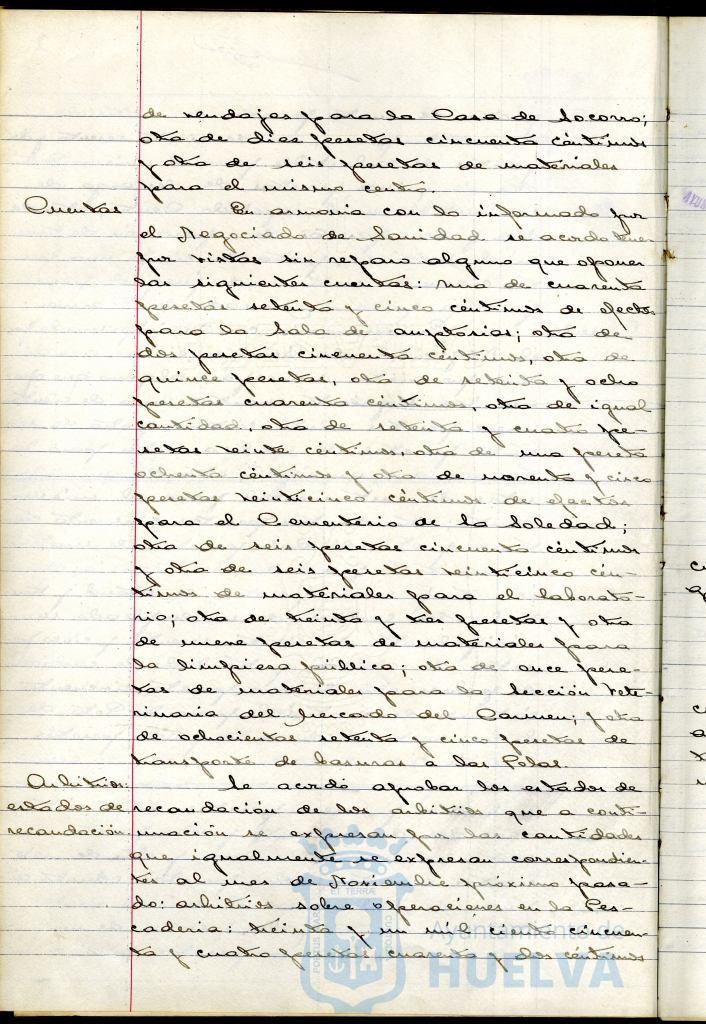 de vendajes para la Casa de Socorro;
otra de diez pesetas cincuenta céntimos
y otra de seis pesetas de materiales
para el mismo centro.
Cuentas
En armonia con lo informado por
el Negociado de Sanidad se acordó tener
por vistas sin reparo alguno que oponer
las siguientes cuentas: una de cuarenta
pesetas setenta y cinco céntimos de efectos
para la Sala de autopsias; otra de
dos pesetas cincuenta céntimos, otra de
quince pesetas, otra de setenta y ocho
pesetas cuarenta céntimos, otra de igual
cantidad, otra de setenta y cuatro pe-
setas veinte céntimos, otra de una peseta
ochenta céntimos y otra de noventa y cinco
pesetas veinticinco céntimos de efectos
para el Cementerio de la Soledad;
otra de seis pesetas cincuenta céntimos
y otra de seis pesetas veinticinco cén-
timos de materiales para el laborato-
rio; otra de treinta y tres pesetas y otra
de nueve pesetas de materiales para
la limpieza pública; otra de once pese-
tas de materiales para la Sección Vete-
rinaria del Mercado del Carmen; y otra
de ochocientas setenta y cinco pesetas de
transporte de basuras a las Polas.
Arbitrios:
estados de
recaudación.
Se acordó aprobar los estados de
recaudación de los arbitrios que a conti-
nuación se expresan por las cantidades
que igualmente se expresan correspondien-
tes al mes de Noviembre próximo pasa-
do: arbitrios sobre operaciones en la Pes-
caderia: treinta y un mil ciento cincuen-
ta y cuatro pesetas cuarenta y dos céntimos
Ayuntamiento de
HUELVA